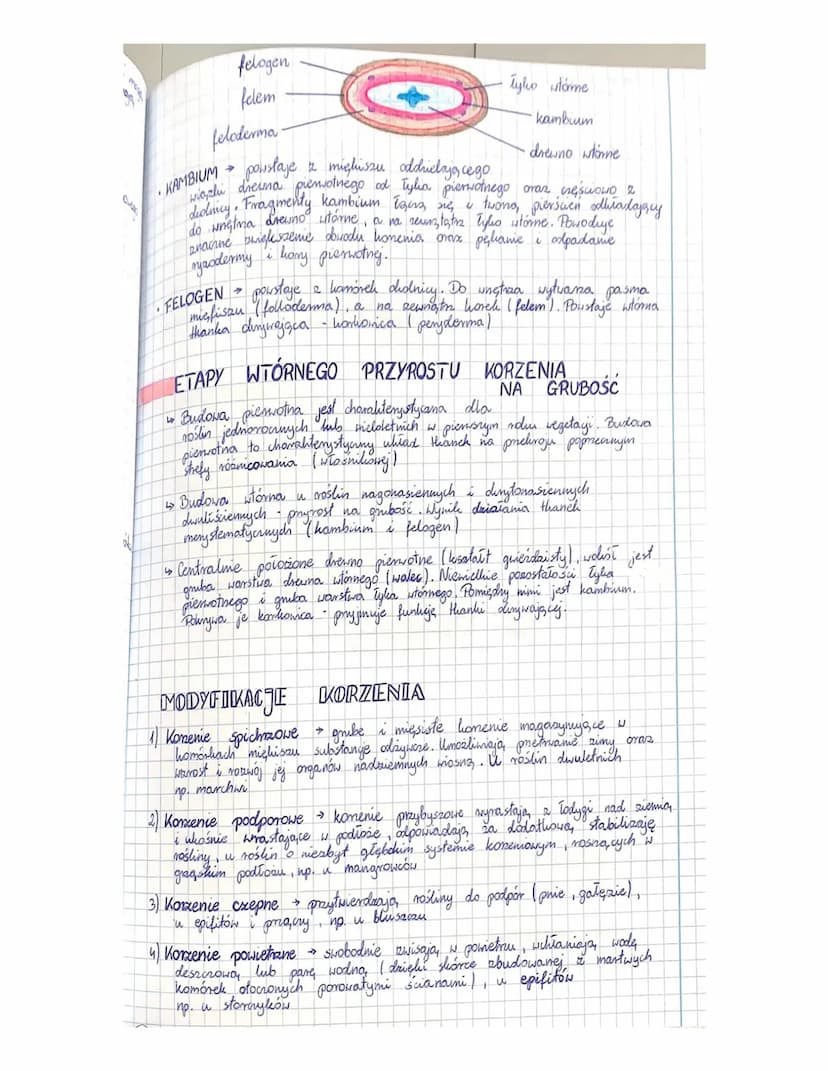 felogen
felem
feloderma
łyko wtórne
kambium
drewno wtórne
• KAMBIUM → powstaje z miękiszu oddzielającego
wiązki drewna pierwotnego od łyka pierwotnego oraz częściowo z
okolnicy. Fragmenty kambium łączą się i tworzą pierścień odkładający
do wnętrza drewno wtórne, a na zewnątrz łyko wtórne. Powoduje
znaczne zwiększenie obwodu korzenia oraz pękanie i odpadanie
ryzodermy i kory pierwotnej.
• FELOGEN → powstaje z komórek okolnicy. Do wnętrza wytwarza pasma
miękiszu (felloderma), a na zewnątrz korek (felem). Powstaje wtórna
tkanka okrywająca - korkowica (peryderma)
ETAPY WTÓRNEGO PRZYROSTU KORZENIA
NA GRUBOŚĆ
↳ Budowa pierwotna jest charakterystyczna dla
roślin jednorocznych lub wieloletnich w pierwszym roku wegetacji. Budowa
pierwotna to charakterystyczny układ tkanek na przekroju poprzecznym
strefy różnicowania (włośnikowej)
↳ Budowa wtórna u roślin nagonasiennych i okrytonasiennych
dwuliściennych - przyrost na grubość. Wynik działania tkanek
merystematycznych (kambium i felogen)
↳ Centralnie położone drewno pierwotne (kształt gwieździsty), wokół jest
gruba warstwa drewna wtórnego (walec). Niewielkie pozostałości łyka
pierwotnego i gruba warstwa łyka wtórnego. Pomiędzy nimi jest kambium.
Pokrywa je korkowica - przyjmuje funkcję tkanki okrywającej.
MODYFIKACJE KORZENIA
1) Korzenie spichrzowe → grube i mięsiste korzenie magazynujące w
komórkach miękiszu substancje odżywcze. Umożliwiają przetrwanie zimy oraz
wzrost i rozwój jej organów nadziemnych wiosną. U roślin dwuletnich
np. marchwi
2) Korzenie podporowe → korzenie przybyszowe wyrastają z łodygi nad ziemią
i ukośnie wrastające w podłoże, odpowiadają za dodatkową stabilizację
rośliny, u roślin o niezbyt głębokim systemie korzeniowym, rosnących w
grząskim podłożu, np. u mangrowców
3) Korzenie czepne → przytwierdzają rośliny do podpór (pnie, gałęzie),
u epifitów i pnączy, np. u bluszczu
4) Korzenie powietrzne → swobodnie zwisają w powietrzu, wchłaniają wodę
deszczową lub parę wodną (dzięki skórce zbudowanej z martwych
komórek otoczonych porowatymi ścianami), u epifitów
np. u storczyków